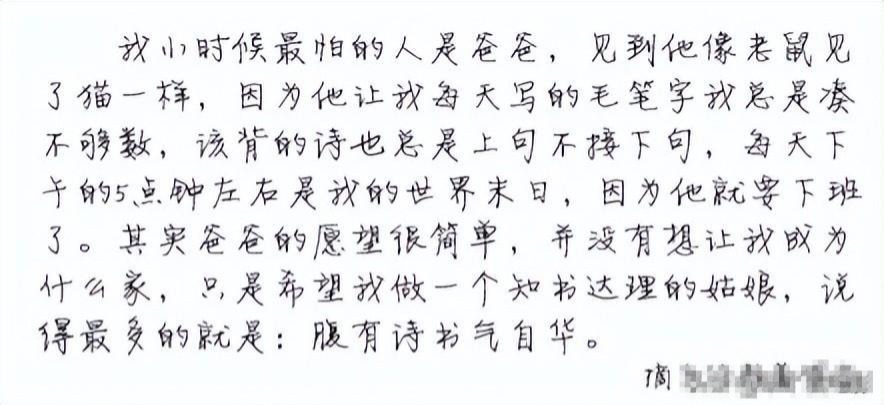 我小时候最怕的人是爸爸，见到他像老鼠见
了猫一样，因为他让我每天写的毛笔字我总是凑
不够数，该背的诗也总是上句不接下句，每天下
午的5点钟左右是我的世界末日，因为他就要下班
了。其实爸爸的愿望很简单，并没有想让我成为
什么家，只是希望我做一个知书达理的姑娘，说
得最多的就是：腹有诗书气自华。
摘